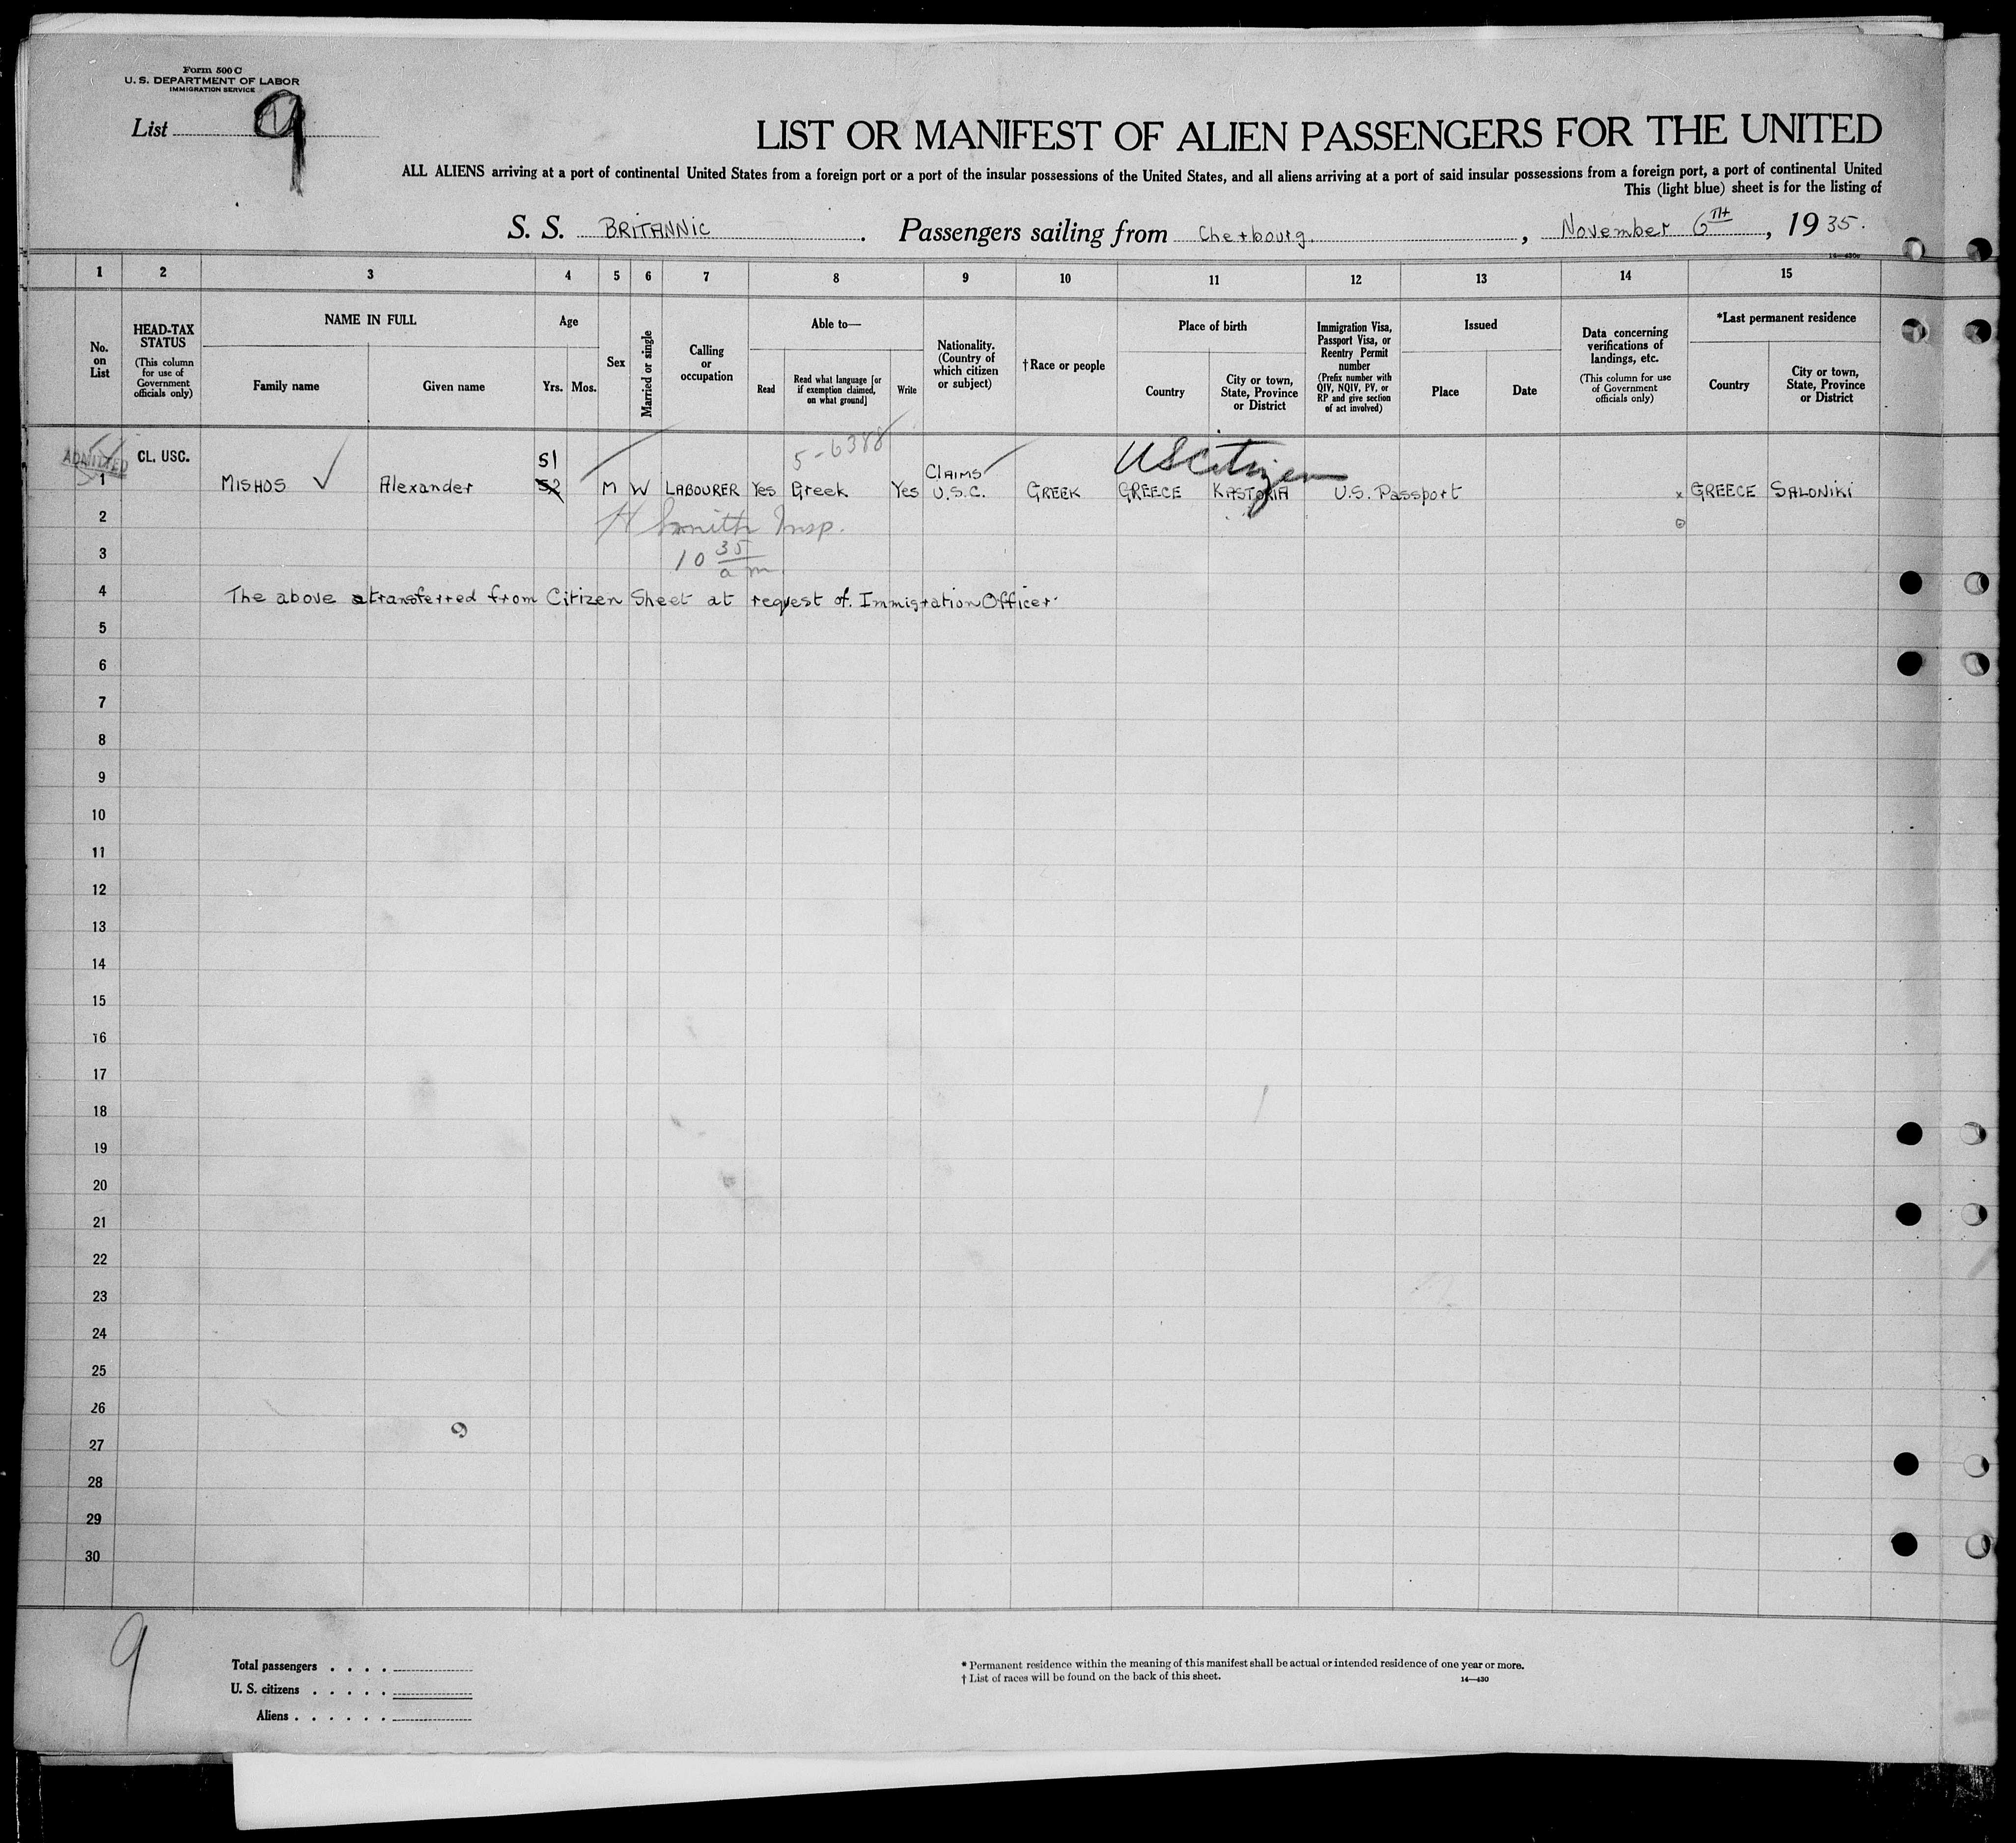 Form 500 C
U. S. DEPARTMENT OF LABOR
IMMIGRATION SERVICE
List 9
LIST OR MANIFEST OF ALIEN PASSENGERS FOR THE UNITED
ALL ALIENS arriving at a port of continental United States from a foreign port or a port of the insular possessions of the United States, and all aliens arriving at a port of said insular possessions from a foreign port, a port of continental United
This (light blue) sheet is for the listing of
S. S. BRITANNIC. Passengers sailing from Cherbourg, November 6TH, 1935.
1 2 3 4 5 6 7 8 9 10 11 12 13 14 15
No. on List
HEAD-TAX STATUS
(This column for use of Government officials only)
NAME IN FULL
Family name Given name
Age
Yrs. Mos.
Sex
Married or single
Calling or occupation
Able to—
Read
Read what language [or if exemption claimed, on what ground]
Write
Nationality. (Country of which citizen or subject)
†Race or people
Place of birth
Country
City or town, State, Province or District
Immigration Visa, Passport Visa, or Reentry Permit number
(Prefix number with QIV, NQIV, PV, or RP and give section of act involved)
Issued
Place Date
Data concerning verifications of landings, etc.
(This column for use of Government officials only)
*Last permanent residence
Country
City or town, State, Province or District
ADMITTED CL. USC. 51 5-6388 CLAIMS US Citizen
1 MISHOS Alexander 52 M W LABOURER Yes Greek Yes U.S.C. GREEK GREECE KASTORIA U.S. Passport x GREECE SALONIKI
2 H Smith Insp.
3 10 35 a m
4 The above transferred from Citizen Sheet at request of Immigration Officer.
5
6
7
8
9
10
11
12
13
14
15
16
17
18
19
20
21
22
23
24
25
26
9
27
28
29
30
9
Total passengers . . . .
U. S. citizens . . . . .
Aliens . . . . . .
* Permanent residence within the meaning of this manifest shall be actual or intended residence of one year or more.
† List of races will be found on the back of this sheet. 14—430